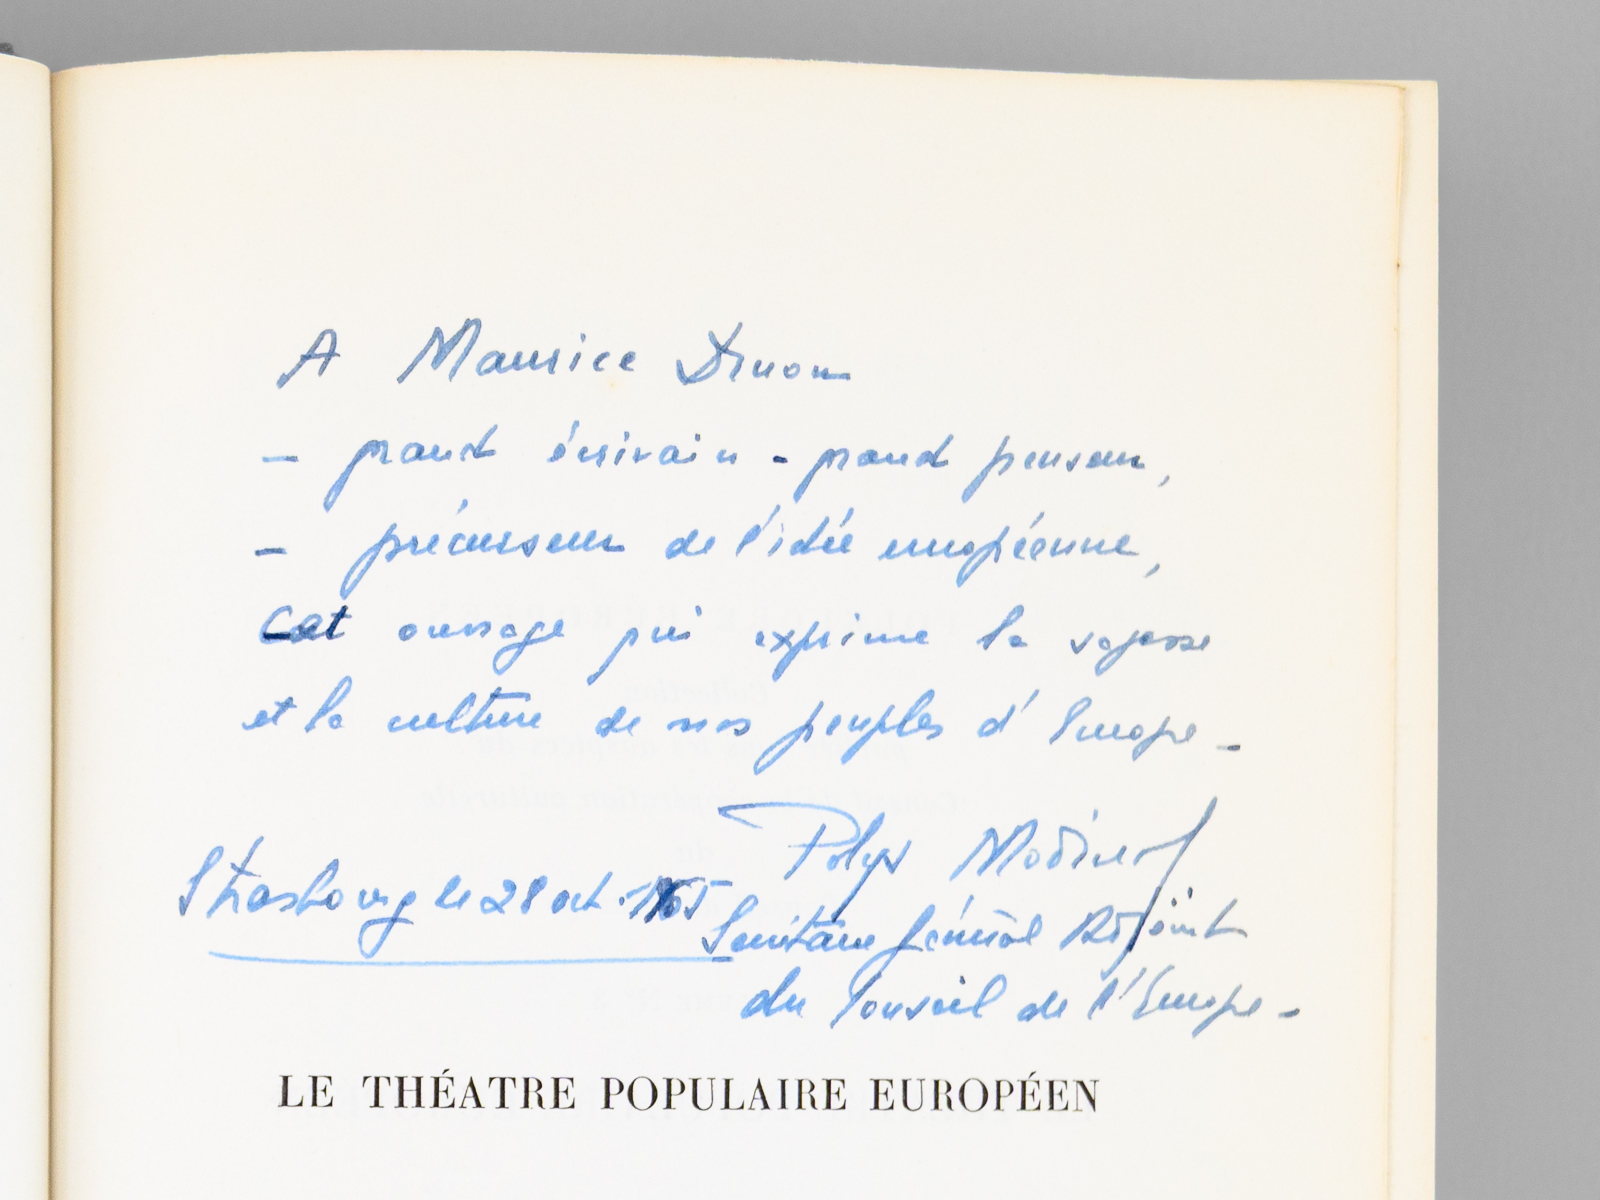 A Maurice Druon
- grand écrivain - grand penseur,
- précurseur de l'idée européenne,
Cet ouvrage qui exprime la sagesse
et la culture de nos peuples d'Europe -
Polys Modinos
Strasbourg le 28 oct. 1965
Secrétaire Général Adjoint
du Conseil de l'Europe -
LE THÉATRE POPULAIRE EUROPÉEN